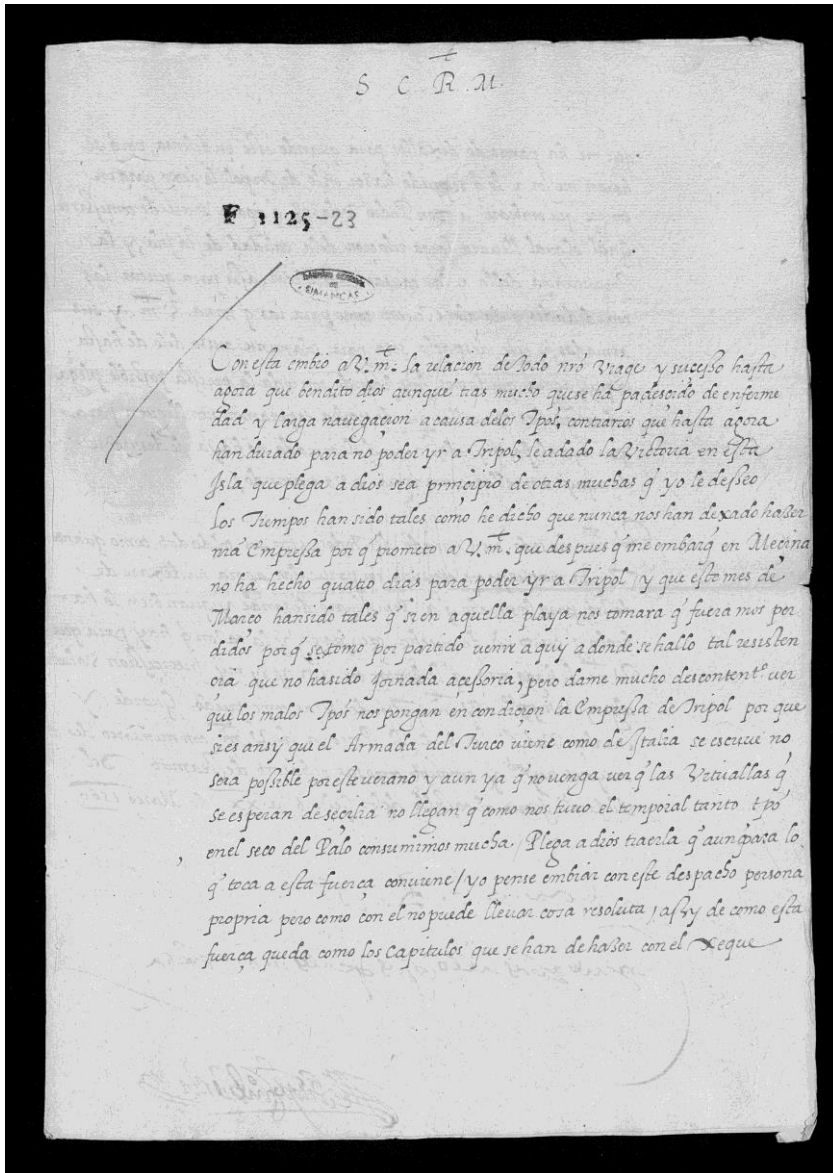 +
S C R M.
E 1125-23
ARCHIVO GENERAL
DE
SIMANCAS
Con esta embio a V. mt. la relacion de todo nro viage y sucesso hasta
agora que bendito dios aunque tras mucho que se ha padescido de enferme
dad y larga navegacion a causa delos tpos, contrarios que hasta agora
han durado para no poder yr a Tripol, le a dado la Victoria en esta
Isla que plega a dios sea principio de otras muchas q yo le desseo
Los Tiempos han sido tales como he dicho que nunca nos han dexado hazer
nra Empressa por q prometo a V. mt. que despues q me embarq en Mecina
no ha hecho quatro dias para poder yr a Tripol y que este mes de
Março han sido tales q si en aquella playa nos tomara q fueramos per
didos por q se tomo por partido venir a quy a donde se hallo tal resisten
cia que no ha sido Jornada acessoria, pero dame mucho descontento ver
que los malos tpos nos pongan en condicion la Empressa de Tripol por que
si es ansy que el Armada del Turco viene como de Italia se escrive no
sera possible por este verano y aun ya q no venga ver q las Vituallas q
se esperan de secilia no llegan q como nos tuvo el temporal tanto tpo
en el seco del Palo consumimos mucha / Plega a dios traerla q aun para lo
q toca a esta fuerça conviene / yo pense embiar con este despacho persona
propria pero como con el no puede llevar cosa resoluta, assy de como esta
fuerça queda como los Capitulos que se han de hazer con el xeque